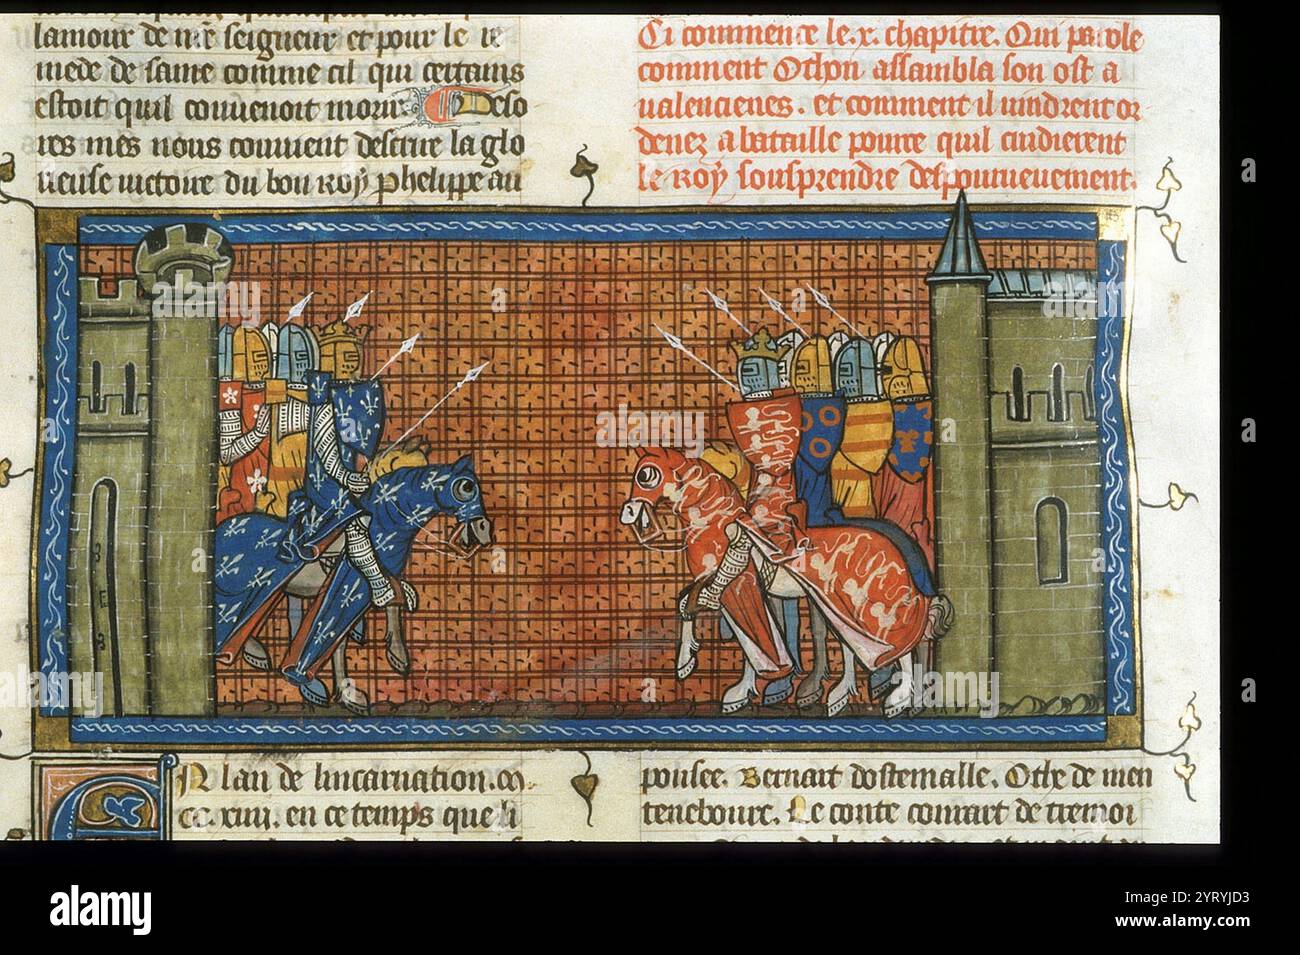 lamour de nre seigneur et pour le re
mede de same comme cil qui certains
estoit quil couuenoit morir. Deso
res mes nous couuient descrire la glo
rieuse uictoire du bon Roy Phelippe au
Ci commence le .x. chapitre. Qui parole
comment Othon assambla son ost a
ualencienes. et comment il uindrent or
denez a bataille pource quil cuidierent
le Roy sousprendre despourueuement.
En lan de lincarnation .m.
cc. xiiij. en ce temps que li
ponsee. Bernart dostemalle. Othe de men
tenebourc. Le conte conrart de tremoi
alamy
Image ID: 2YRYJD3
www.alamy.com